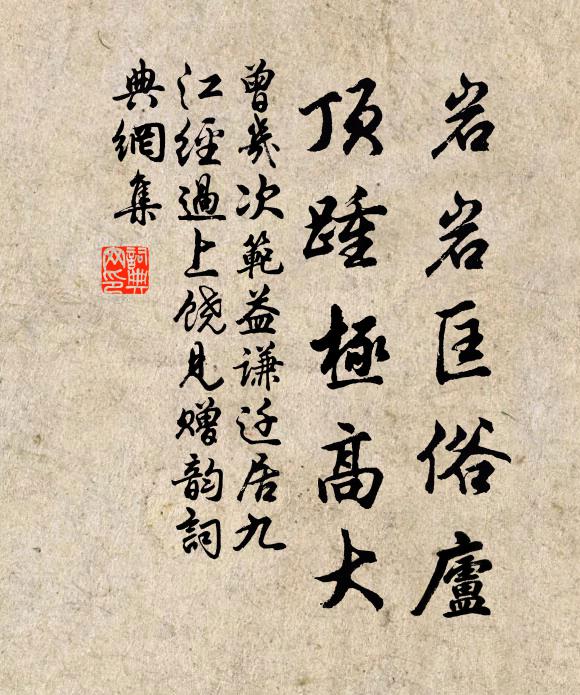 岩岩匡俗廬
頂踵極高大
曾幾次範益謙迁居九
江經過上饶見赠韵詞
典網集
詞典網印